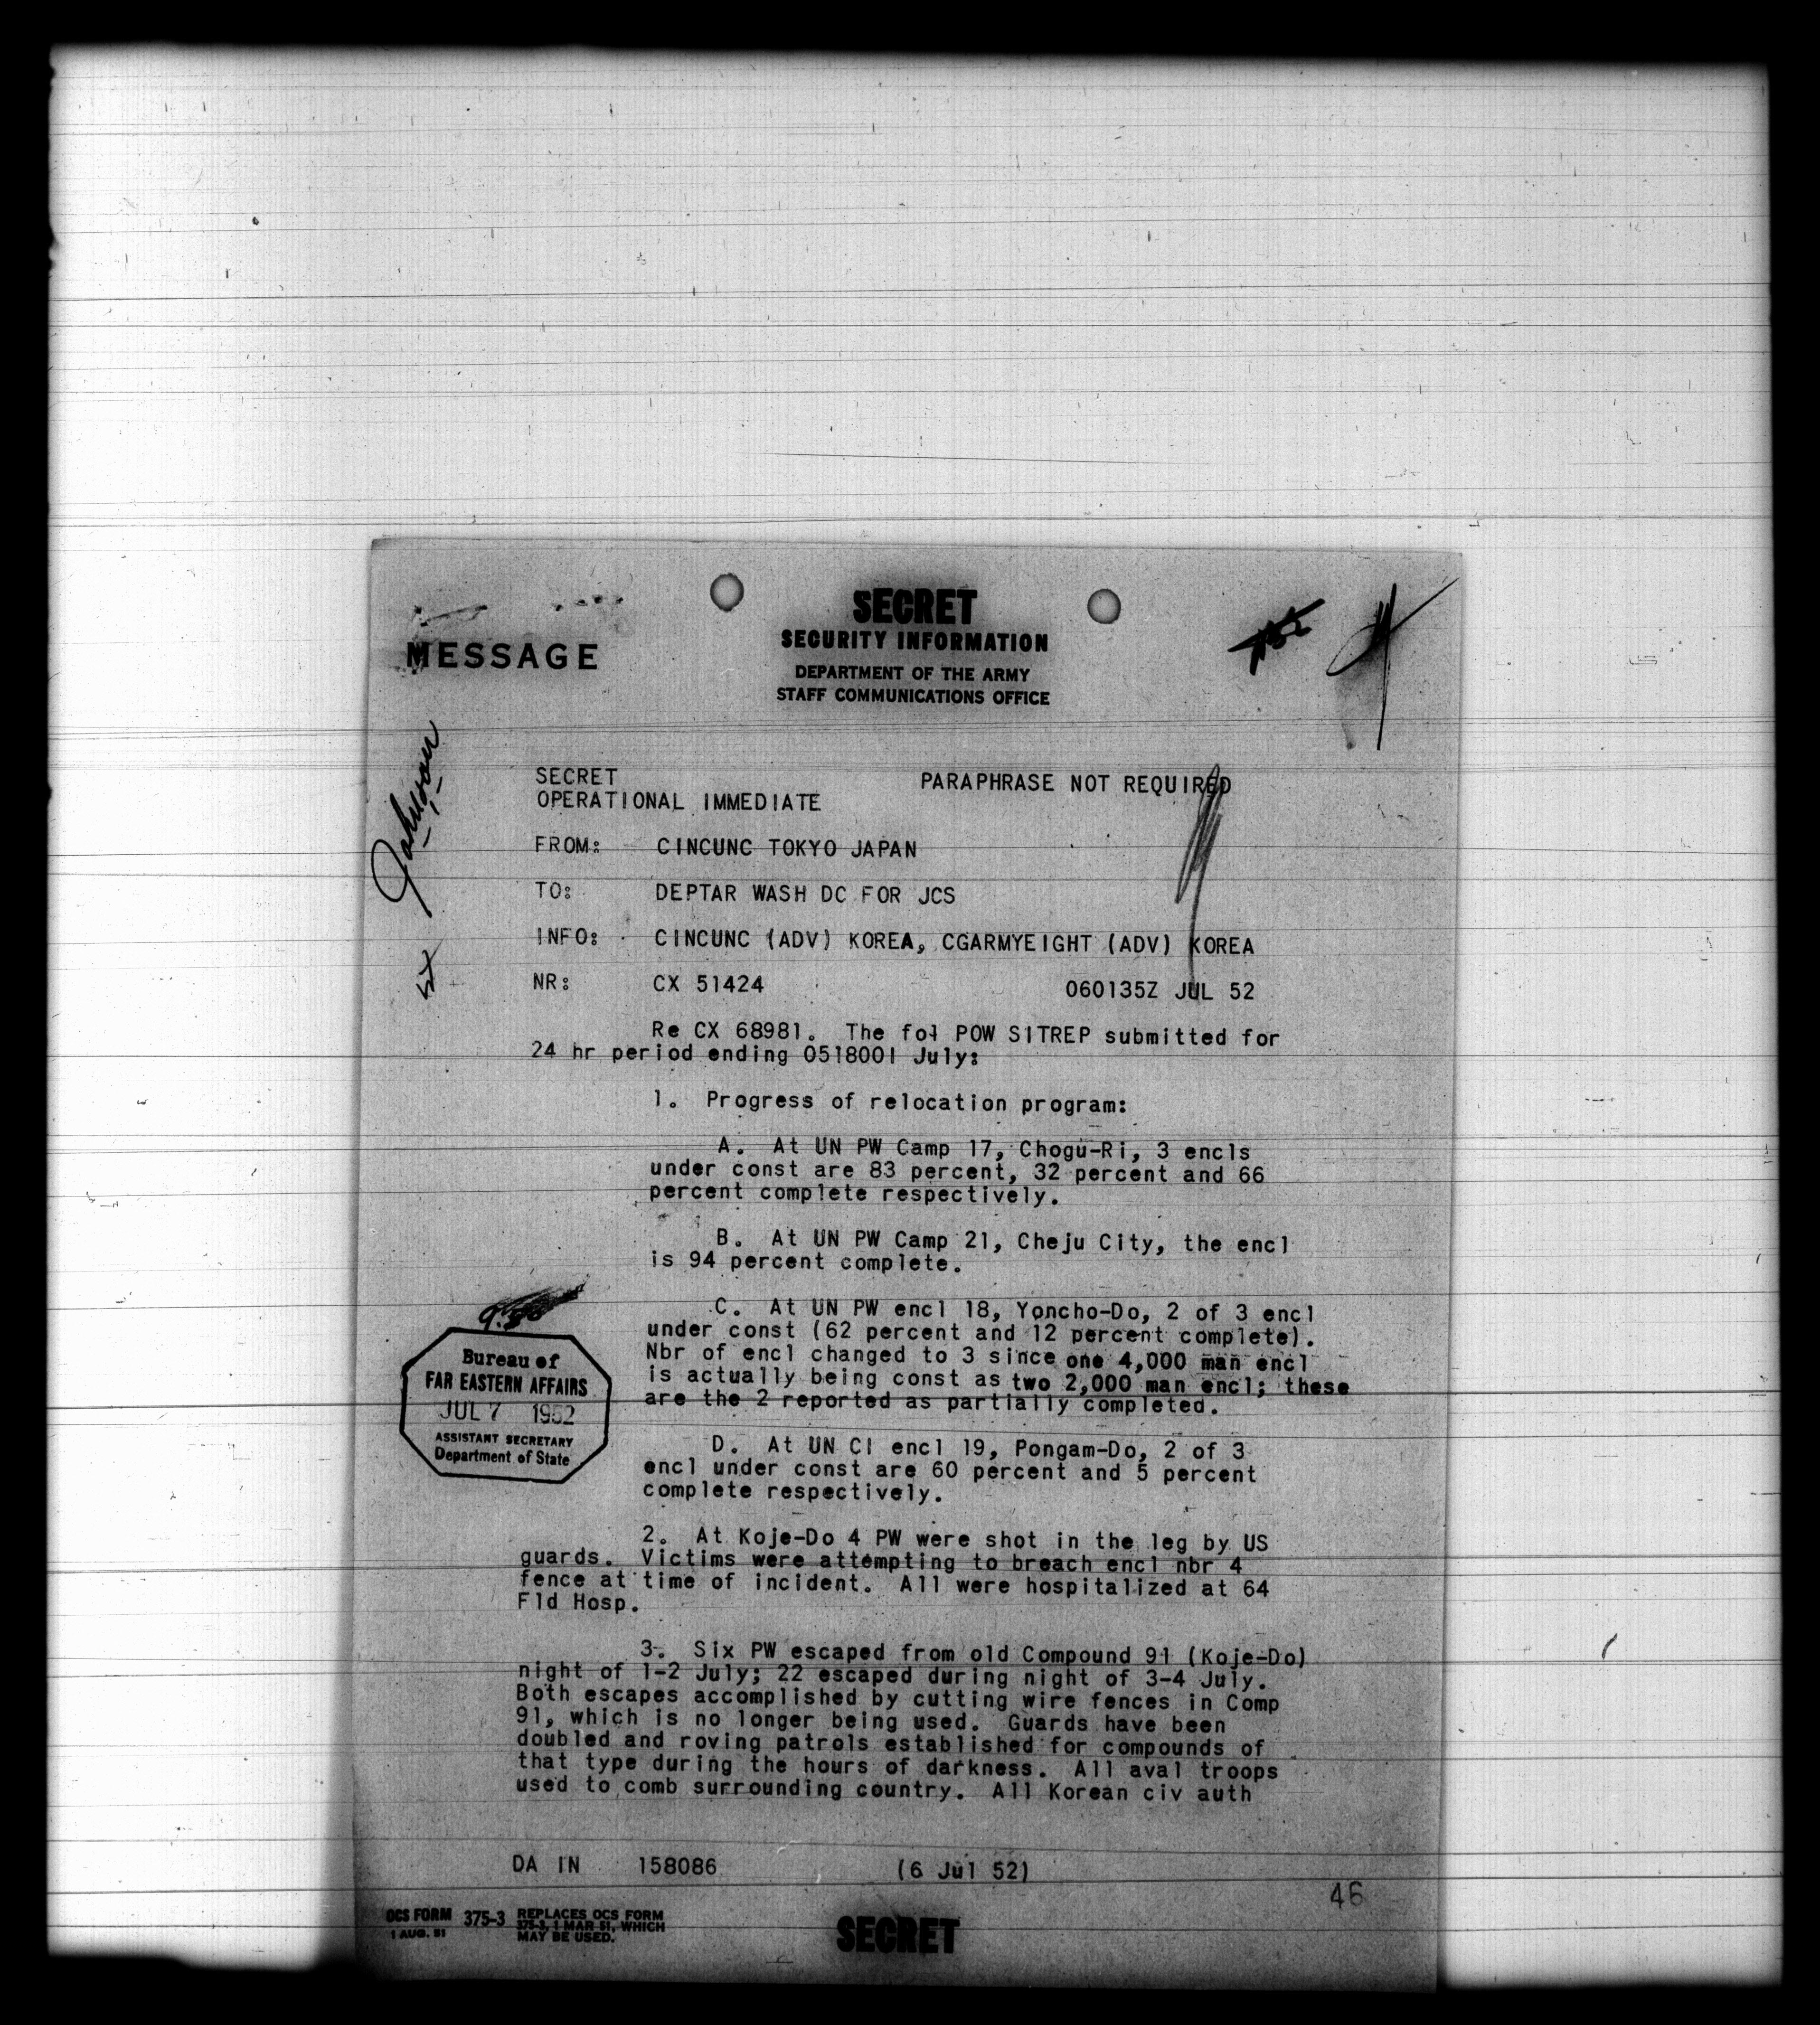 SECRET
SECURITY INFORMATION
MESSAGE
DEPARTMENT OF THE ARMY
STAFF COMMUNICATIONS OFFICE
SECRET
PARAPHRASE NOT REQUIRED
OPERATIONAL IMMEDIATE
FROM: CINCUNC TOKYO JAPAN
TO: DEPTAR WASH DC FOR JCS
INFO: CINCUNC (ADV) KOREA, CGARMYEIGHT (ADV) KOREA
NR: CX 51424 060135Z JUL 52
Re CX 68981. The fol POW SITREP submitted for
24 hr period ending 051800I July:
1. Progress of relocation program:
A. At UN PW Camp 17, Chogu-Ri, 3 encls
under const are 83 percent, 32 percent and 66
percent complete respectively.
B. At UN PW Camp 21, Cheju City, the encl
is 94 percent complete.
C. At UN PW encl 18, Yoncho-Do, 2 of 3 encl
under const (62 percent and 12 percent complete).
Nbr of encl changed to 3 since one 4,000 man encl
is actually being const as two 2,000 man encl; these
are the 2 reported as partially completed.
9:50
Bureau of
FAR EASTERN AFFAIRS
JUL 7 1952
ASSISTANT SECRETARY
Department of State
D. At UN CI encl 19, Pongam-Do, 2 of 3
encl under const are 60 percent and 5 percent
complete respectively.
2. At Koje-Do 4 PW were shot in the leg by US
guards. Victims were attempting to breach encl nbr 4
fence at time of incident. All were hospitalized at 64
Fld Hosp.
3. Six PW escaped from old Compound 91 (Koje-Do)
night of 1-2 July; 22 escaped during night of 3-4 July.
Both escapes accomplished by cutting wire fences in Comp
91, which is no longer being used. Guards have been
doubled and roving patrols established for compounds of
that type during the hours of darkness. All aval troops
used to comb surrounding country. All Korean civ auth
DA IN 158086 (6 Jul 52)
46
OCS FORM 375-3 REPLACES OCS FORM
1 AUG. 51 375-3, 1 MAR 51, WHICH
MAY BE USED.
SECRET